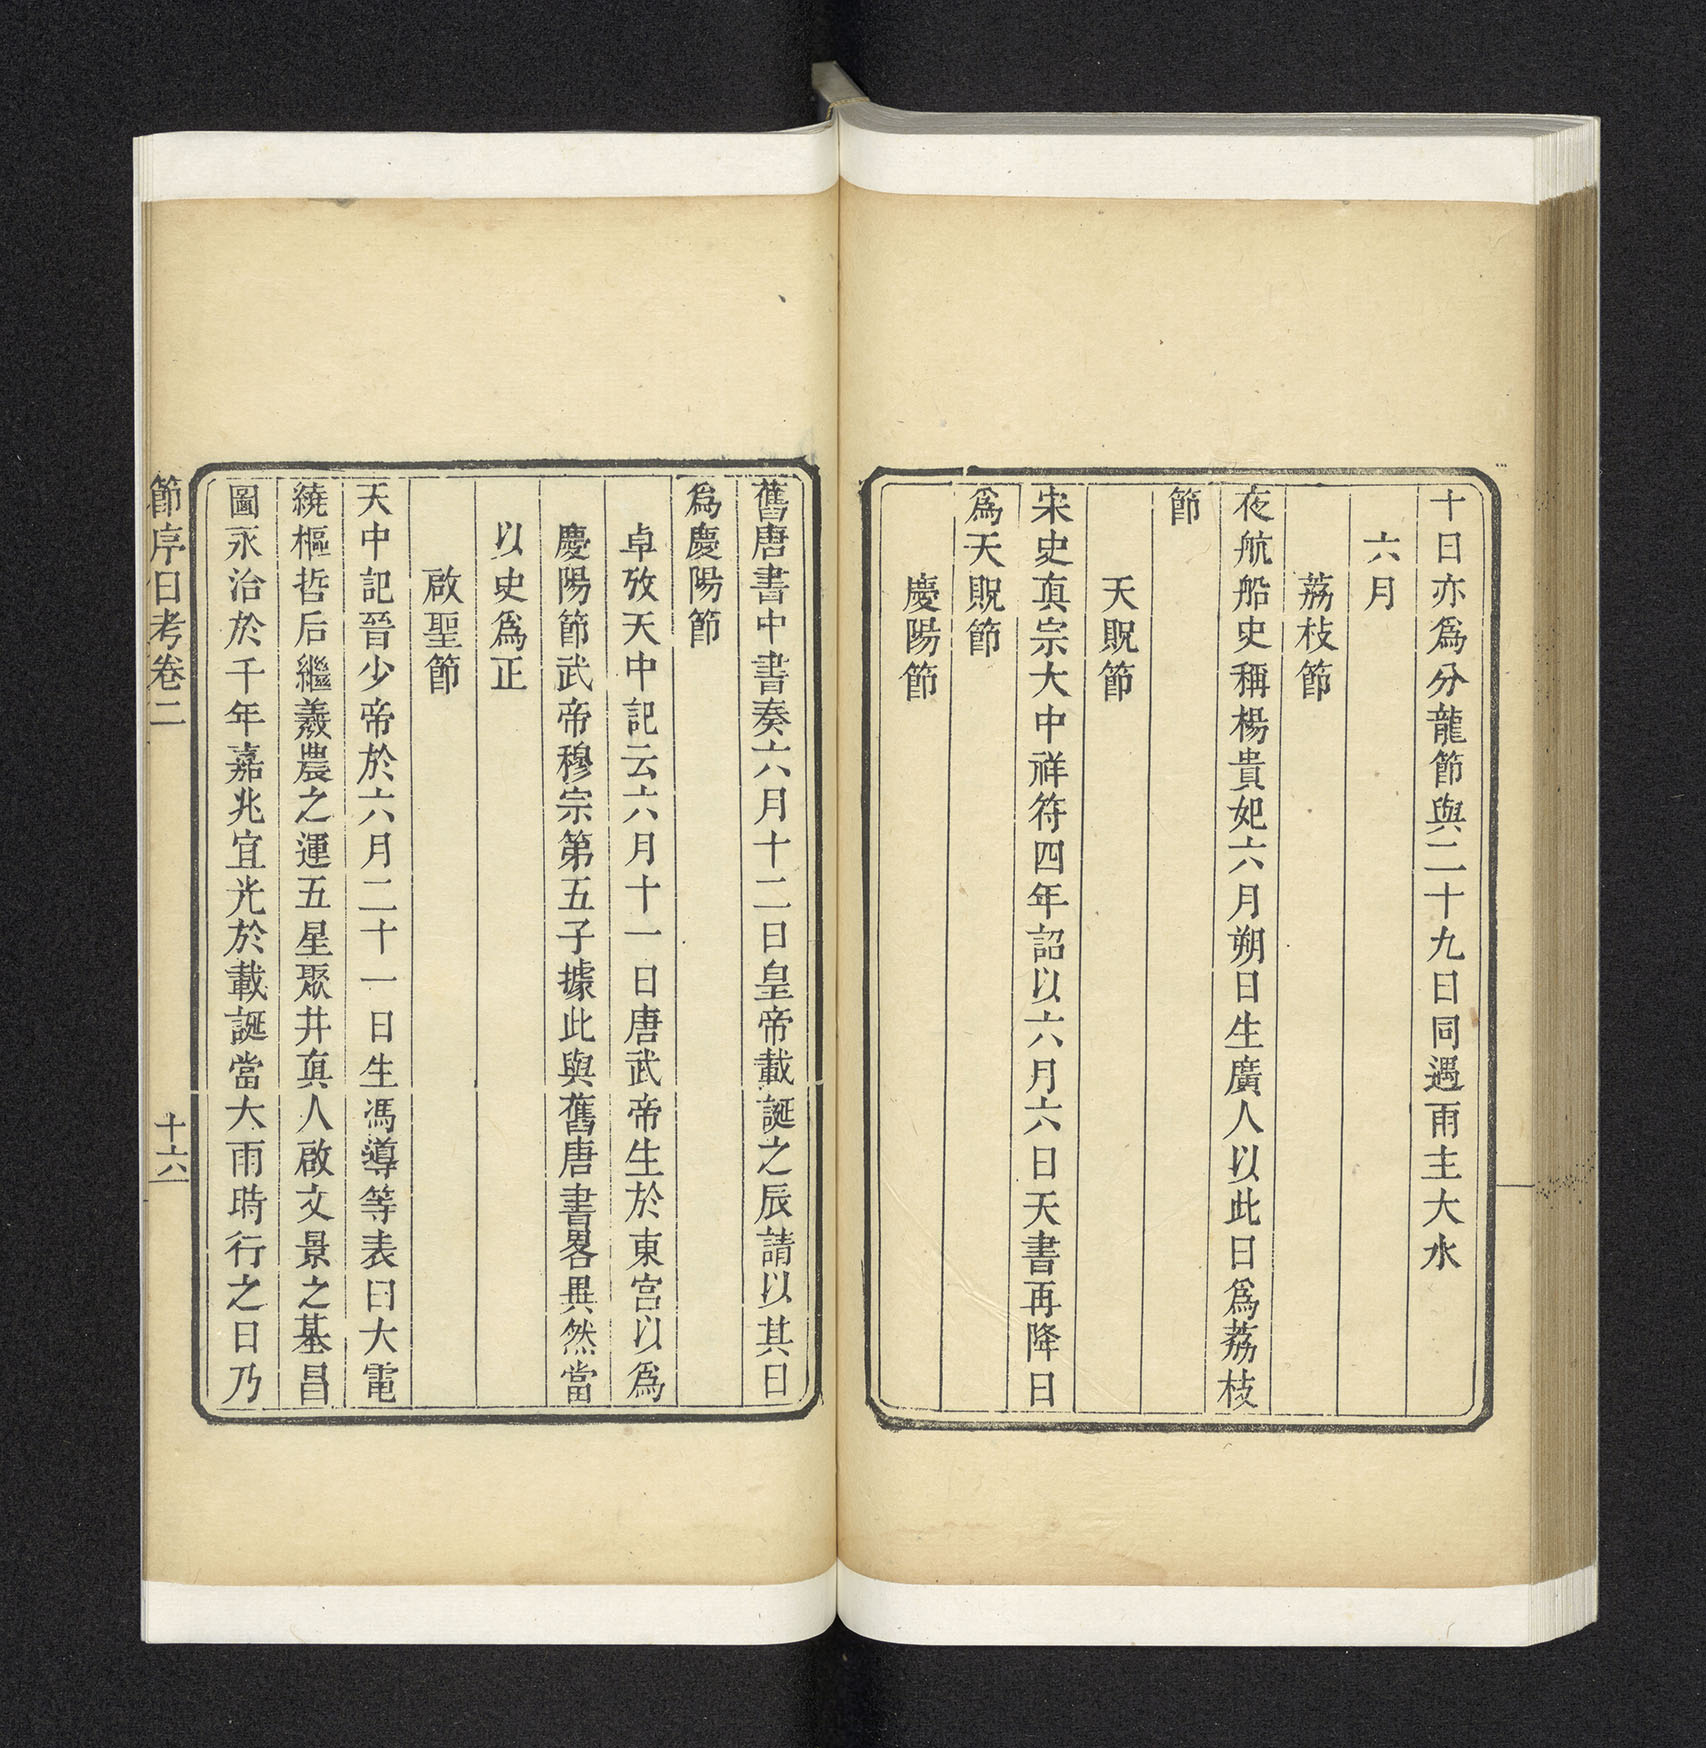 十日亦爲分龍節與二十九日同遇雨主大水
六月
荔枝節
夜航船史稱楊貴妃六月朔日生廣人以此日爲荔枝
節
天貺節
宋史真宗大中祥符四年詔以六月六日天書再降日
爲天貺節
慶陽節
舊唐書中書奏六月十二日皇帝載誕之辰請以其日
爲慶陽節
卓攷天中記云六月十一日唐武帝生於東宮以爲
慶陽節武帝穆宗第五子據此與舊唐書畧異然當
以史爲正
啟聖節
天中記晉少帝於六月二十一日生馮導等表曰大電
繞樞哲后繼羲農之運五星聚井真人啟文景之基昌
圖永治於千年嘉兆宜光於載誕當大雨時行之日乃
節序日考卷二
十六